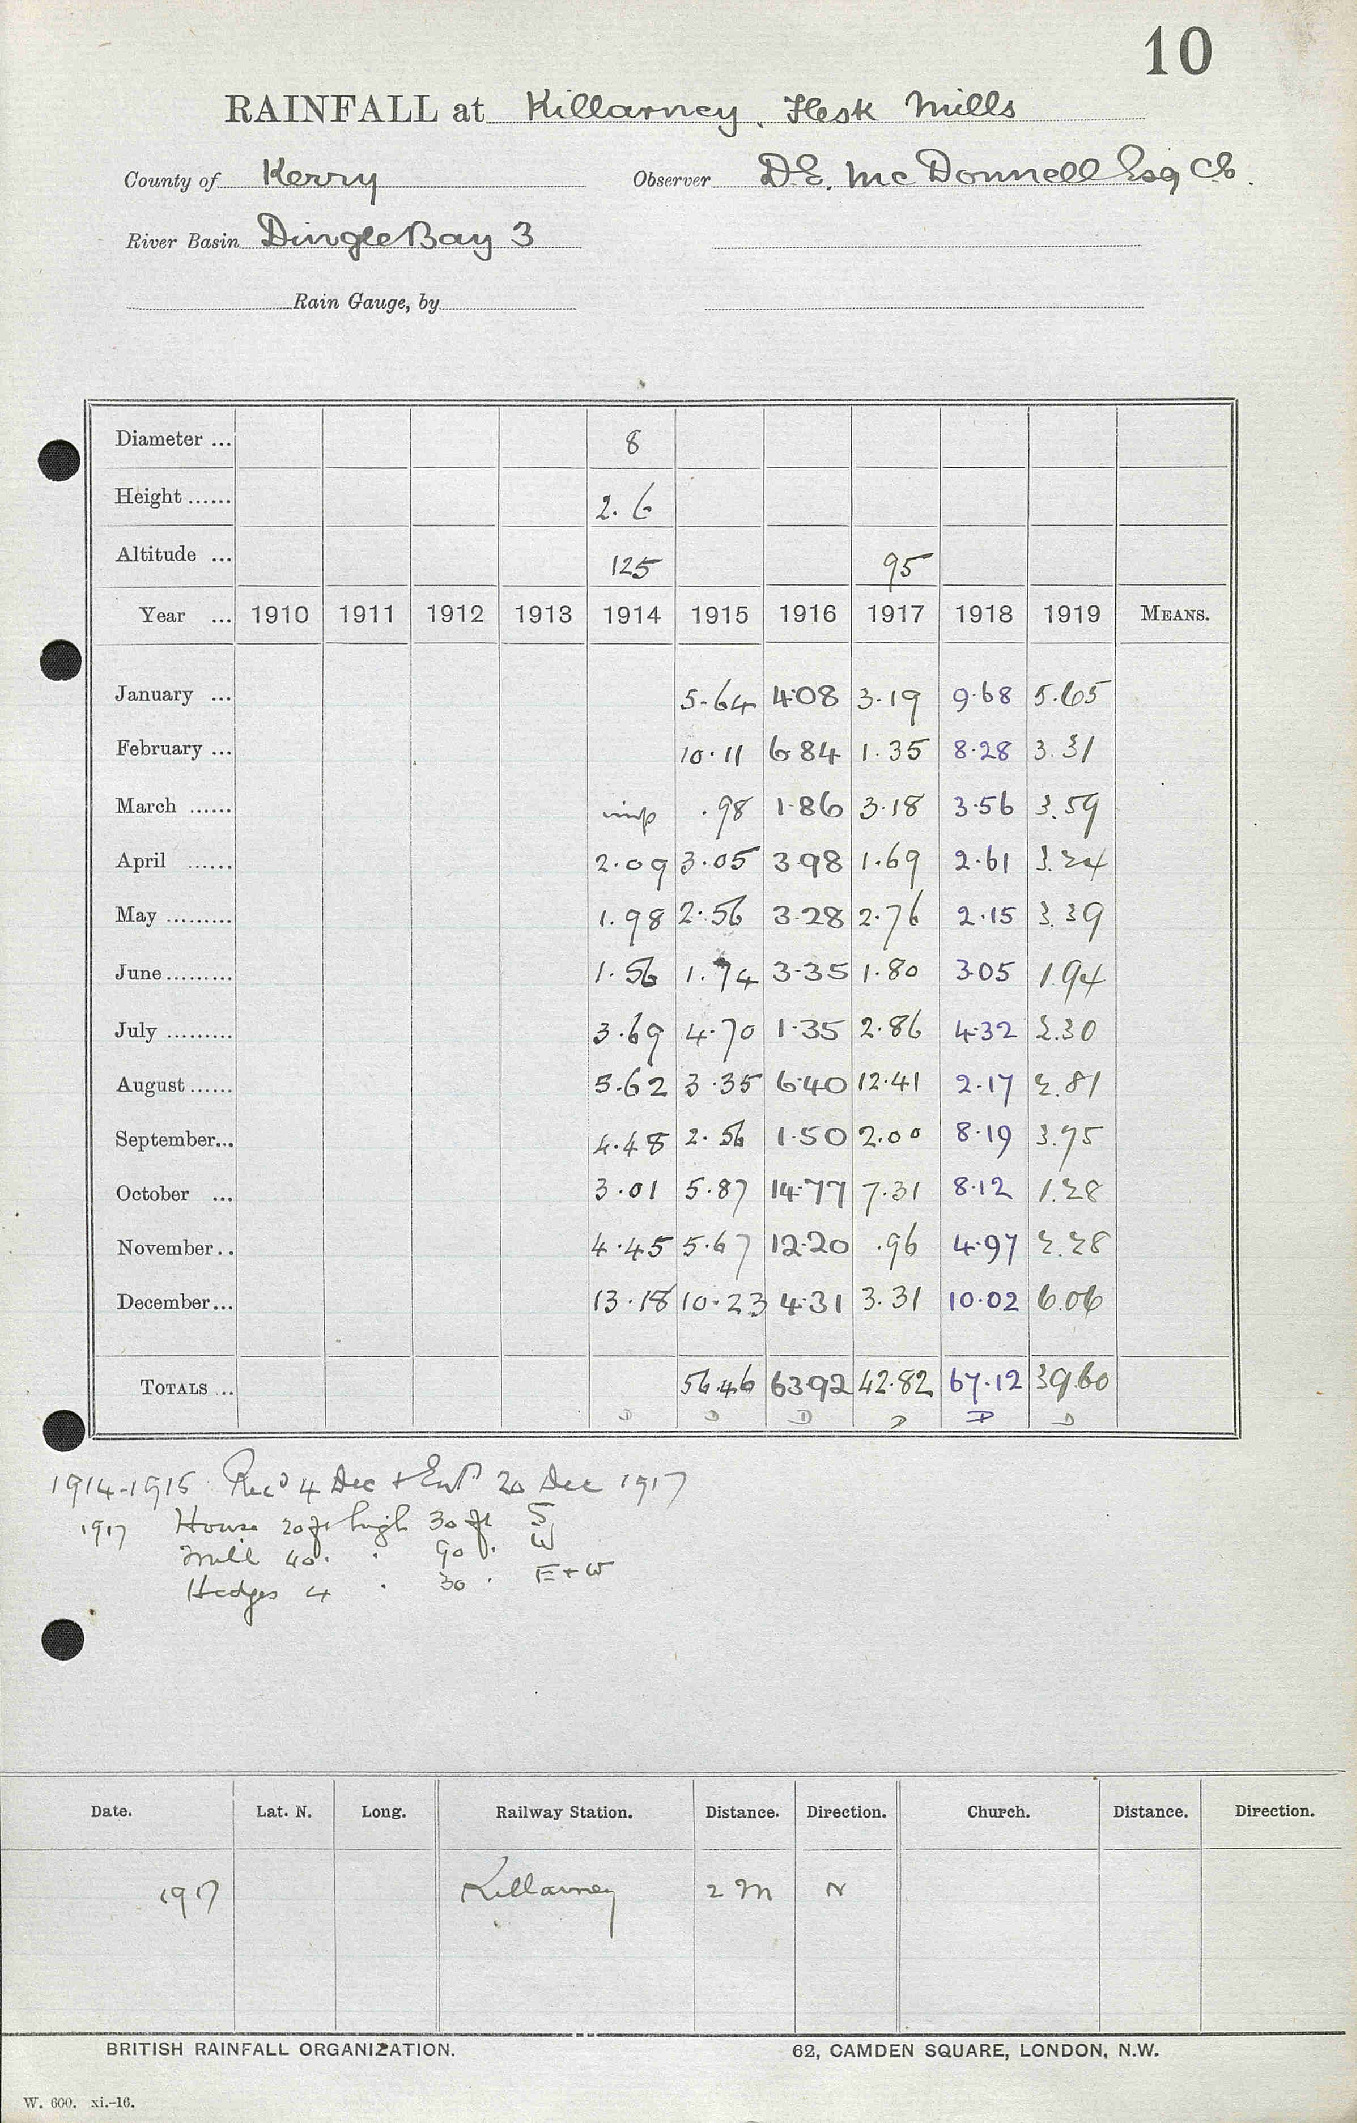 10
RAINFALL at Killarney. Flesk Mills
County of Kerry Observer D.E. McDonnell Esq C.E.
River Basin Dingle Bay 3
Rain Gauge, by
Diameter ... 8
Height ...... 2.6
Altitude ... 125 95
Year ... 1910 1911 1912 1913 1914 1915 1916 1917 1918 1919 MEANS.
January ... 5.64 4.08 3.19 9.68 5.65
February ... 10.11 6.84 1.35 8.28 3.31
March ...... imp .98 1.86 3.18 3.56 3.59
April ...... 2.09 3.05 3.98 1.69 2.61 3.24
May ......... 1.98 2.56 3.28 2.76 2.15 3.39
June ......... 1.56 1.74 3.35 1.80 3.05 1.94
July ......... 3.69 4.70 1.35 2.86 4.32 2.30
August ...... 5.62 3.35 6.40 12.41 2.17 2.81
September... 4.48 2.56 1.50 2.00 8.19 3.75
October ... 3.01 5.87 14.77 7.31 8.12 1.28
November .. 4.45 5.67 12.20 .96 4.97 2.28
December... 13.18 10.23 4.31 3.31 10.02 6.06
TOTALS ... 56.46 63.92 42.82 67.12 39.60
D D D D D D
1914-1915 Rec'd 4 Dec + Ent'd 20 Dec 1917
1917 House 20 ft high 30 ft S
Mill 40 . . 90 . W
Hedges 4 . 30 . E + W
Date. Lat. N. Long. Railway Station. Distance. Direction. Church. Distance. Direction.
1917 Killarney 2 m N
BRITISH RAINFALL ORGANIZATION. 62, CAMDEN SQUARE, LONDON, N.W.
W. 600. xi.-16.